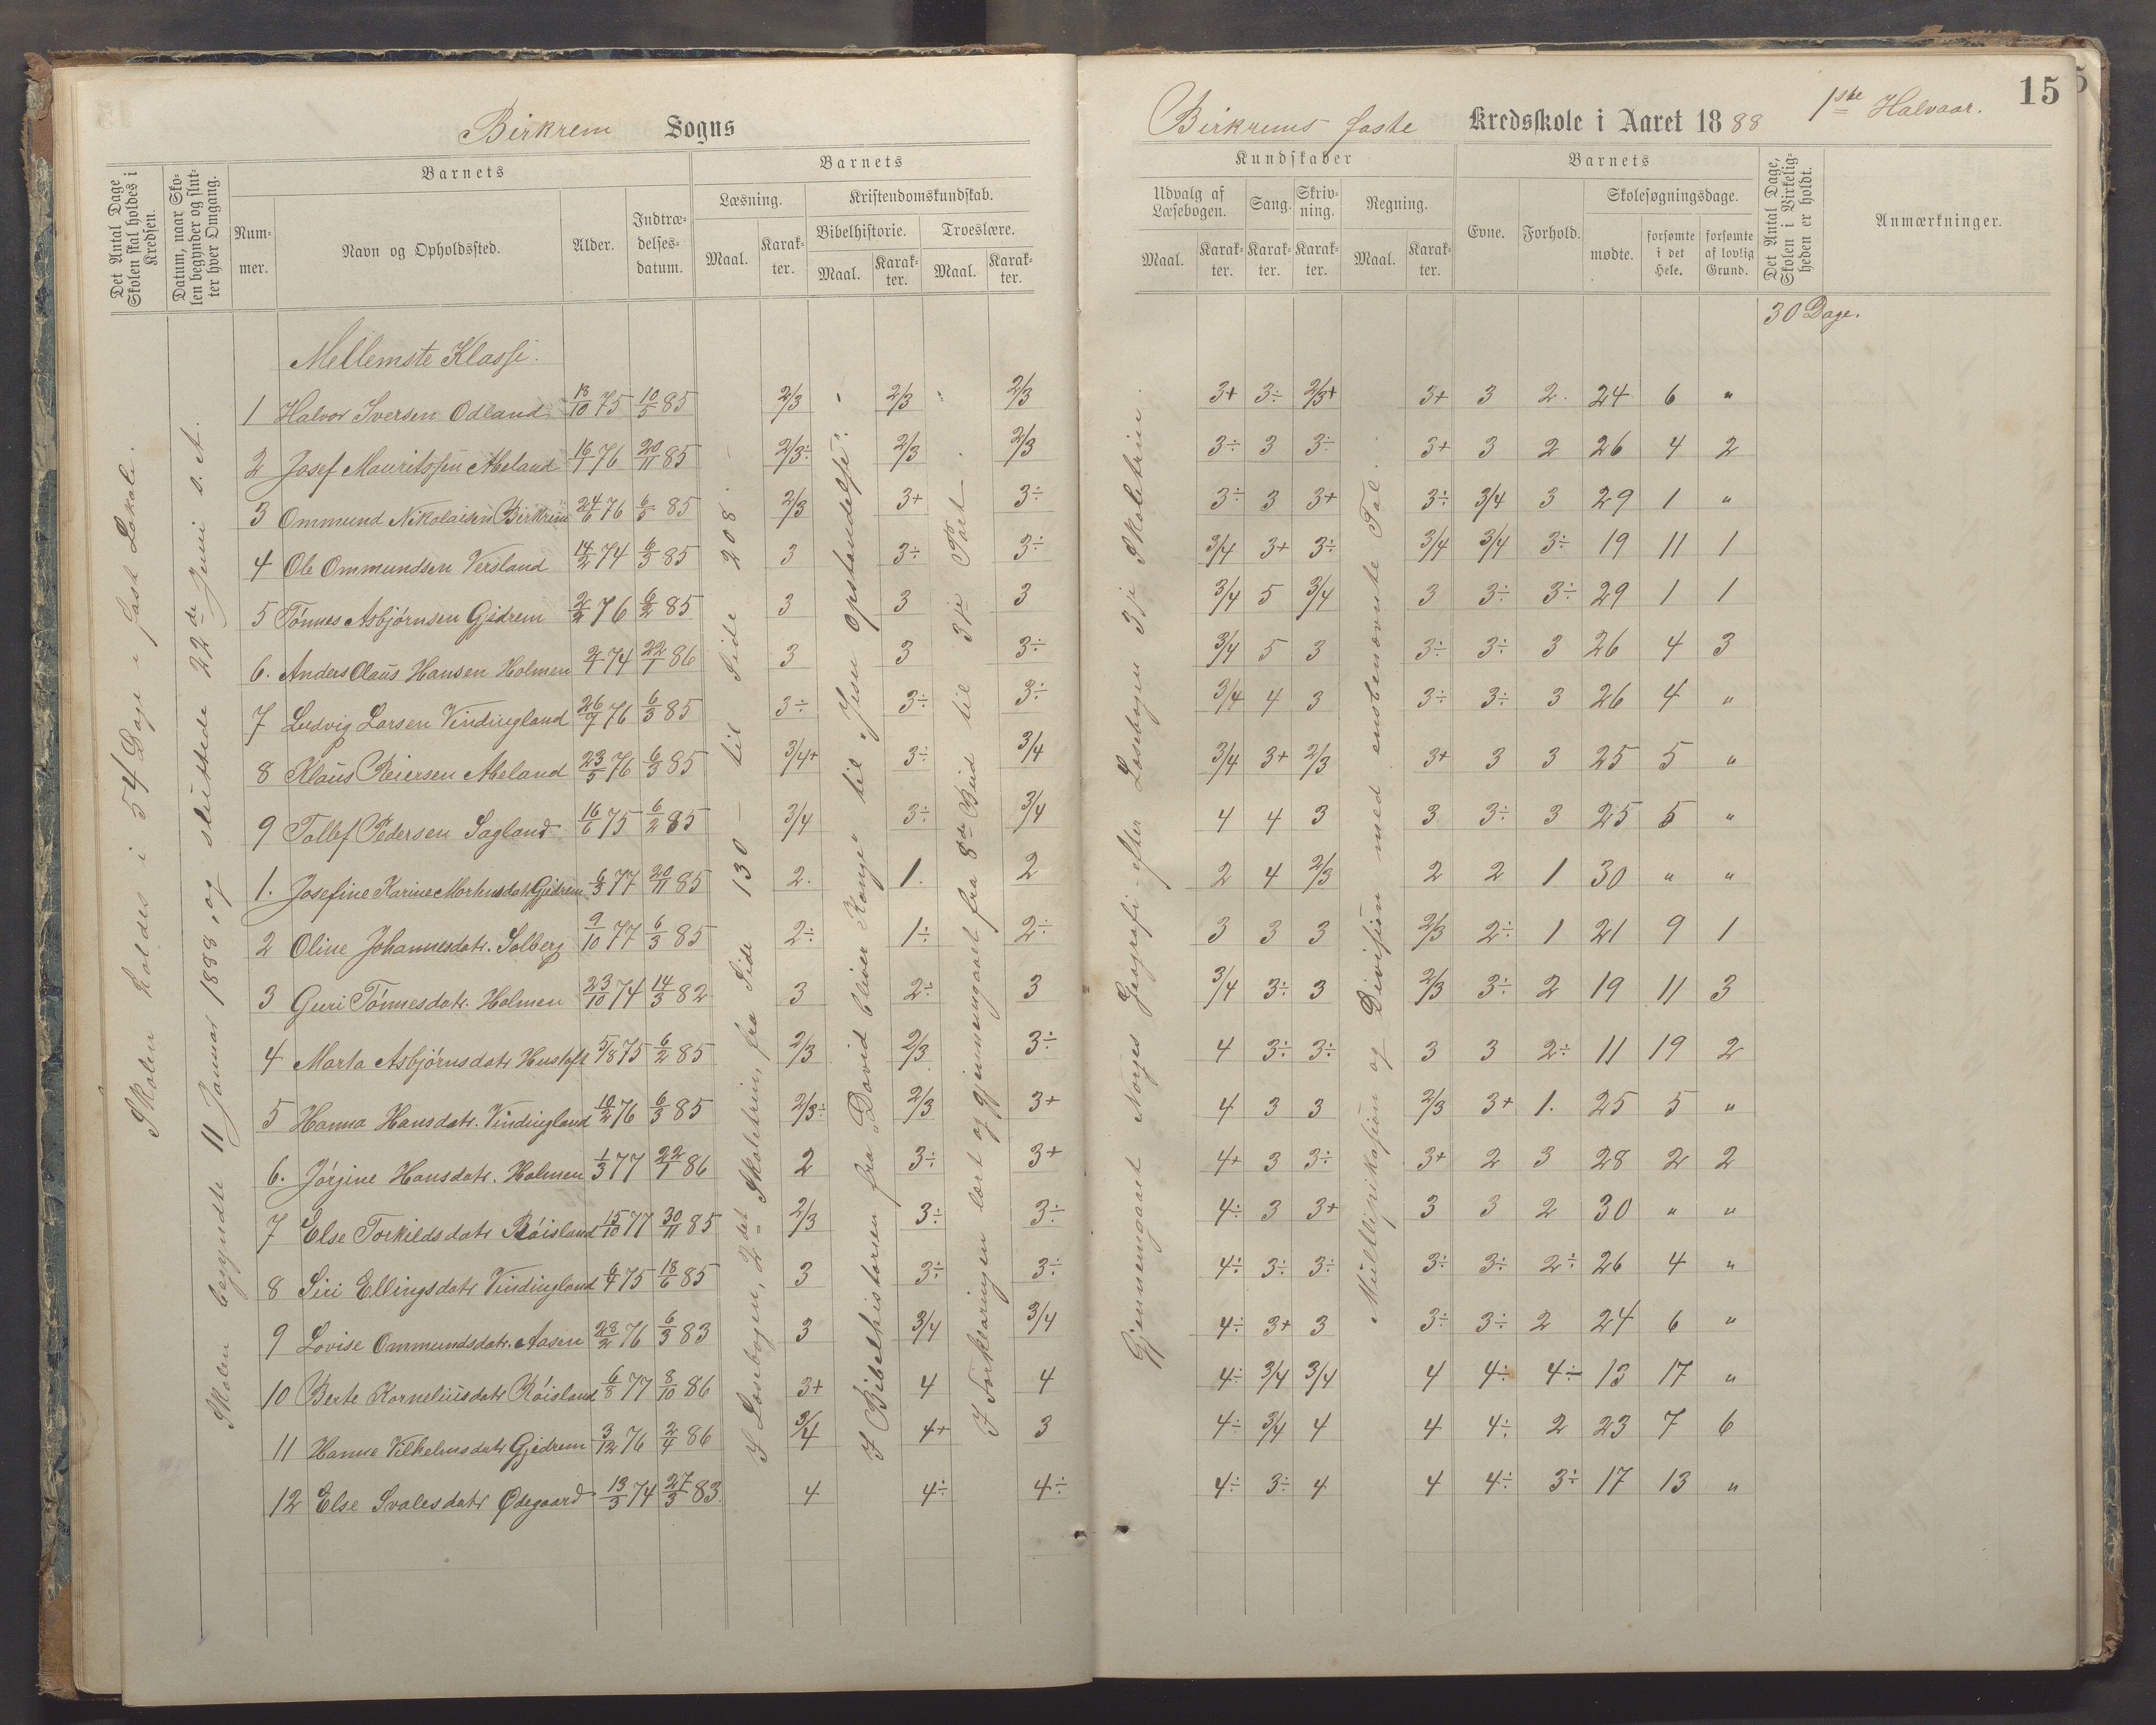 Birkrem Sogns
Birkrems faste Kredsskole i Aaret 1888 1ste Halvaar.
15
Det Antal Dage Skolen skal holdes i Kredsen.
Datum, naar Skolen begynder og slutter hver Omgang.
Barnets
Nummer.
Navn og Opholdssted.
Alder.
Indtrædelsesdatum.
Barnets
Læsning.
Maal.
Karakter.
Kristendomskundskab.
Bibelhistorie.
Maal.
Karakter.
Troeslære.
Maal.
Karakter.
Kundskaber
Udvalg af Læsebogen.
Maal.
Karakter.
Sang.
Karakter.
Skrivning.
Karakter.
Regning.
Maal.
Karakter.
Barnets
Evne.
Forhold.
Skolesøgningsdage.
mødte.
forsømte i det Hele.
forsømte af lovlig Grund.
Det Antal Dage, Skolen i Virkeligheden er holdt.
Anmærkninger.
Skolen holdes i 54 Dage i fast Lokale.
Skolen begyndte 11 Januar 1888, og sluttede 22de Juni s. A.
I Læsebogen, 2det Skoletrin, fra Side 130 – til Side 208.
I Bibelhistorien fra „David bliver Konge" til „Jesu Opstandelse".
I Forklaringen lært og gjennemgaaet fra 8de Bud til 3je Part.
Gjennemgaaet Norges Geografi – efter Læsebogen 3je Skoletrin.
Multiplikasion og Division med ensbenævnte Tal.
30 Dage.
Mellemste Klasse.
1 Halvor Iversen Odland 18/10 75 10/5 85 2/3 2/3 2/3 3+ 3÷ 2/3+ 3+ 3 2. 24 6 "
2 Josef Mauritssen Abeland 16/1 76 20/11 85 2/3÷ 2/3 2/3 3÷ 3 3÷ 3+ 3 2 26 4 2
3 Ommund Nikolaisen Birkrem 24/6 76 6/5 85 2/3 3+ 3÷ 3÷ 3 3+ 3÷ 3/4 3 29 1 "
4 Ole Ommundsen Versland 14/2 74 6/3 85 3 3÷ 3÷ 3/4 3+ 3÷ 3/4 3/4 3÷ 19 11 1
5 Tónnes Asbjørnsen Gjedrem 2/2 76 6/2 85 3 3 3 3/4 5 3/4 3 3÷ 3÷ 29 1 1
6. Anders Olaus Hansen Holmen 2/1 74 22/1 86 3 3 3÷ 3/4 5 3 3÷ 3÷ 3 26 4 3
7 Ludvig Larsen Vindingland 26/7 76 6/3 85 3÷ 3÷ 3÷ 3/4 4 3 3÷ 3÷ 3 26 4 "
8 Klaus Reiersen Abeland 23/5 76 6/3 85 3/4+ 3÷ 3/4 3/4 3+ 2/3 3+ 3 3 25 5 "
9 Tollef Pedersen Sagland 16/6 75 6/2 85 3/4 3÷ 3/4 4 4 3 3 3÷ 3 25 5 "
1. Josefine Karine Gjedrem 6/3 77 20/11 85 2. 1. 2 2 4 2/3 2 2 1 30 " "
2 Oline Johannesdatr. Solberg 9/10 77 6/3 85 2÷ 1÷ 2÷ 3 3 3 2/3 2÷ 1 21 9 1
3 Guri Tónnesdatr. Holmen 23/10 74 14/3 82 3 2÷ 3 3/4 3÷ 3 2/3 3÷ 2 19 11 3
4 Marta Asbjørnsdatr Hustoft 5/8 75 6/2 85 2/3 2/3 3÷ 4 3÷ 3÷ 3 3 2÷ 11 19 2
5 Hanna Hansdatr. Vindingland 10/2 76 6/3 85 2/3÷ 2/3 3+ 4 3 3 2/3 3+ 1. 25 5 "
6. Jørgine Hansdatr. Holmen 1/3 77 22/1 86 2 3÷ 3+ 4+ 3 3÷ 3+ 2 3 28 2 2
7 Else Torkildsdatr Róisland 15/10 77 30/11 85 2/3 3÷ 3÷ 4÷ 3 3+ 3 3 2 30 " "
8 Siri Ellingsdatr Vindingland 6/4 75 18/6 85 3 3÷ 3÷ 4÷ 3÷ 3÷ 3÷ 3÷ 2÷ 26 4 "
9 Lovise Ommundsdatr. Aasen 28/2 76 6/3 83 3 3/4 3/4 4÷ 3+ 3 3÷ 3÷ 2 24 6 "
10 Berte Korneliusdatr Róisland 6/8 77 8/10 86 3+ 4 4 4÷ 3/4 3/4 4 4÷ 4÷ 13 17 "
11 Hanne Vilhelmsdatr Gjedrem 3/12 76 2/4 86 3/4 4+ 3 4÷ 3/4 4 4 4÷ 2 23 7 6
12 Else Svalesdatr Ødegaard 13/3 74 27/3 83. 4 4÷ 4÷ 4÷ 3÷ 4 4 4÷ 3÷ 17 13 "